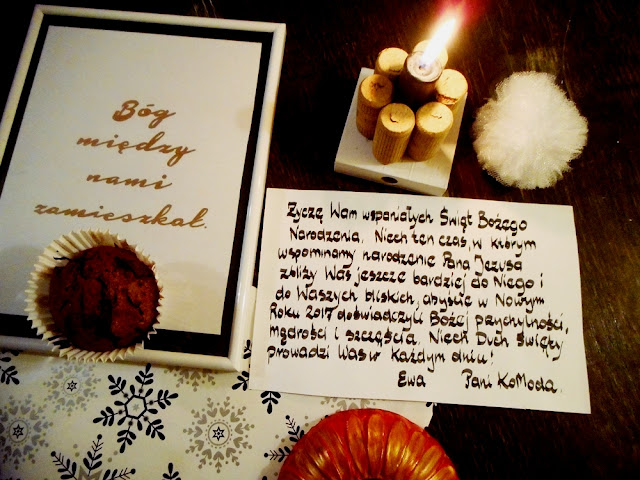 Bóg
między
nami
zamieszkał.
Życzę Wam wspaniałych Świąt Bożego
Narodzenia. Niech ten czas, w którym
wspominamy narodzenie Pana Jezusa
zbliży Was jeszcze bardziej do Niego i
do Waszych bliskich, abyście w Nowym
Roku 2017 doświadczyli Bożej przychylności,
mądrości i szczęścia. Niech Duch Święty
prowadzi Was w każdym dniu!
Ewa Pani KoModa.